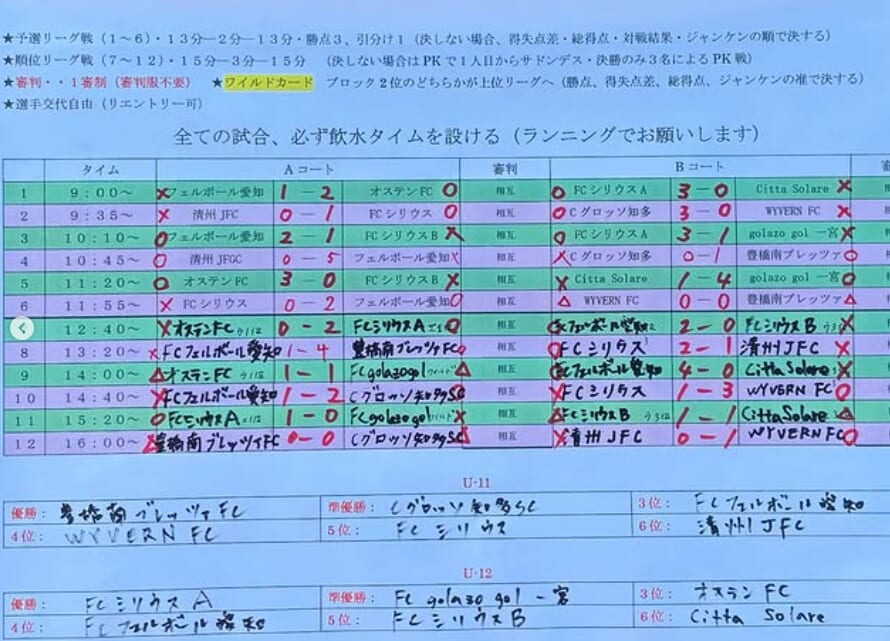 ★予選リーグ戦（1～6）・13分―2分―13分・勝点3、引分け1（決しない場合、得失点差・総得点・対戦結果・ジャンケンの順で決する）
★順位リーグ戦（7～12）・15分―3分―15分　（決しない場合はPKで1人目からサドンデス・決勝のみ3名によるPK戦）
★審判・・1審制（審判服不要）　★ワイルドカード　ブロック2位のどちらかが上位リーグへ（勝点、得失点差、総得点、ジャンケンの准で決する）
★選手交代自由（リエントリー可）
全ての試合、必ず飲水タイムを設ける（ランニングでお願いします）
タイム Aコート 審判 Bコート
1 9：00～ ×フェルボール愛知 1－2 オステンFC○ 相互 ○FCシリウスA 3－0 Citta Solare×
2 9：35～ ×清州JFC 0－1 FCシリウス○ 相互 ○Cグロッソ知多 3－0 WYVERN FC×
3 10：10～ ○フェルボール愛知 2－1 FCシリウスB× 相互 ○FCシリウスA 3－1 golazo gol 一宮×
4 10：45～ ○清州JFGC 0－5 フェルボール愛知× 相互 ×Cグロッソ知多 0－1 豊橋南プレッツァ○
5 11：20～ ○オステンFC 3－0 FCシリウスB× 相互 ×Citta Solare 1－4 golazo gol 一宮○
6 11：55～ ×FCシリウス 0－2 フェルボール愛知○ 相互 △WYVERN FC 0－0 豊橋南プレッツァ△
12：40～ ×オステンFC 0－2 FCシリウスA○ フェルボール愛知 2－0 FCシリウスB×
8 13：20～ ×FCフェルボール愛知 1－4 豊橋南プレッツァFC○ 相互 ○FCシリウス 2－1 清州JFC×
9 14：00～ △オステンFC 1－1 FCgolazogol△ 相互 フェルボール愛知 4－0 Citta Solare×
10 14：40～ ×FCフェルボール愛知 1－2 Cグロッソ知多SC 相互 ×FCシリウス 1－3 WYVERN FC○
11 15：20～ ○FCシリウスA 1－0 FCgolazogol× 相互 △FCシリウスB 1－1 CittaSolare△
12 16：00～ △豊橋南プレッツァFC 0－0 Cグロッソ知多SC△ 相互 ×清州JFC 0－1 WYVERNFC○
U-11
優勝： 豊橋南プレッツァFC 準優勝： Cグロッソ知多SC 3位： FCフェルボール愛知
4位： WYVERN FC 5位： FCシリウス 6位： 清州JFC
U-12
優勝： FCシリウスA 準優勝： FC golazo gol 一宮 3位： オステンFC
4位： FCフェルボール愛知 5位： FCシリウスB 6位： Citta Solare